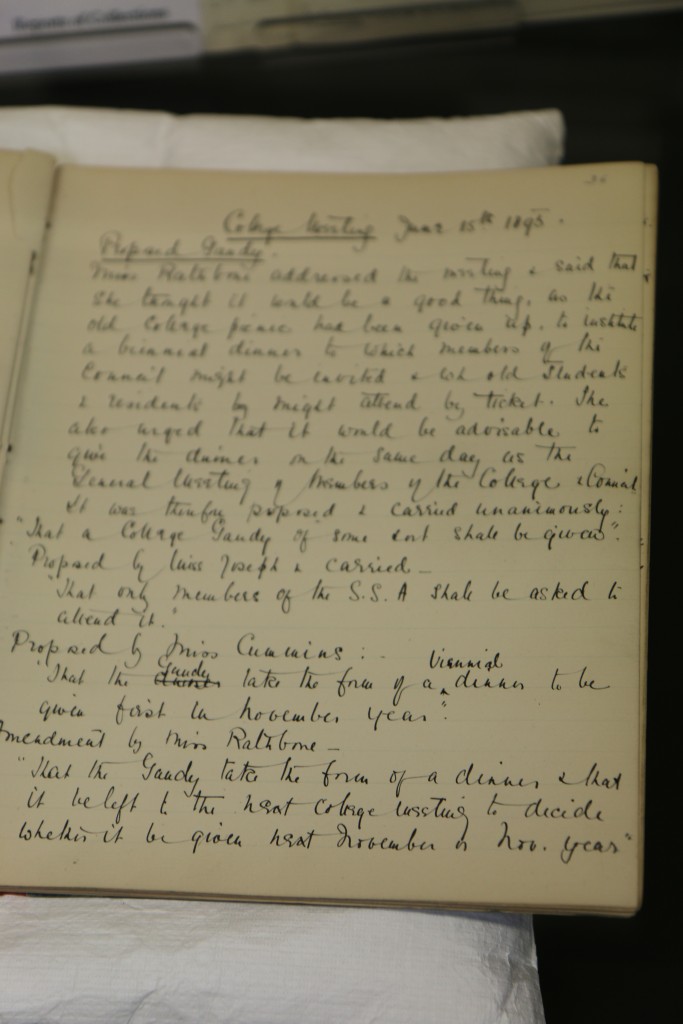 26
College Meeting June 15th 1895.
Proposed Gaudy.
Miss Rathbone addressed the meeting & said that
she thought it would be a good thing, as the
old College picnic had been given up, to institute
a biennial dinner to which members of the
Council might be invited & wh old Students
& residents by might attend by ticket. She
also urged that it would be advisable to
give the dinner on the same day as the
General Meeting of Members of the College & Council
It was therefore proposed & carried unanimously:
"That a College Gaudy of some sort shall be given".
Proposed by Miss Joseph & carried –
"That only members of the S.S.A shall be asked to
attend it."
Proposed by Miss Cummins: –
"That the Gaudy take the form of a Viennial dinner to be
given first in November year".
Amendment by Miss Rathbone –
"That the Gaudy take the form of a dinner & that
it be left to the next College meeting to decide
whether it be given next November or Nov. year"